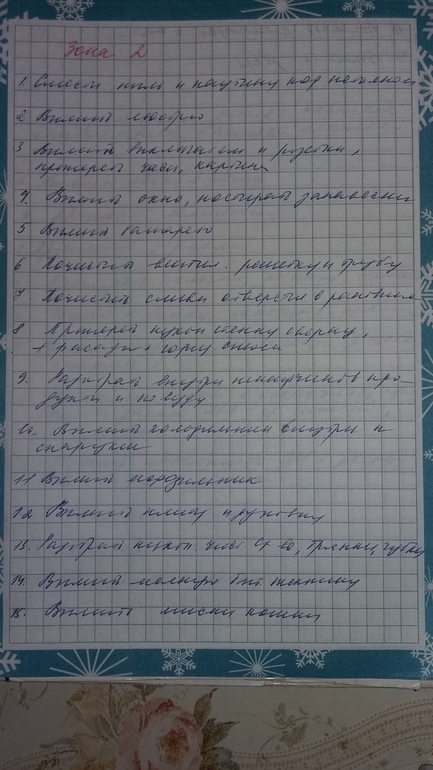 Зона 2
1. Смести пыль и паутину под потолком
2 Вымыть люстру
3 Вымыть выключатели и розетки,
протереть часы, картины
4. Вымыть окно, постирать занавески
5 Вымыть батарею
6 Почистить вентил. решетку и трубу
7 Почистить сливн отверстия в раковине
8 Протереть кухон стенку сверху,
+ фасады + сорт.
9. Разобрать внутри шкафчиков про-
дукты и посуду
10. Вымыть холодильник внутри и
снаружи
11 Вымыть морозильник
12. Вымыть плиту и духовку
13. Разобрать кухон. чист ср-во, тряпки, губки
14. Вымыть мелкую быт технику
15. Вымыть миски кошки